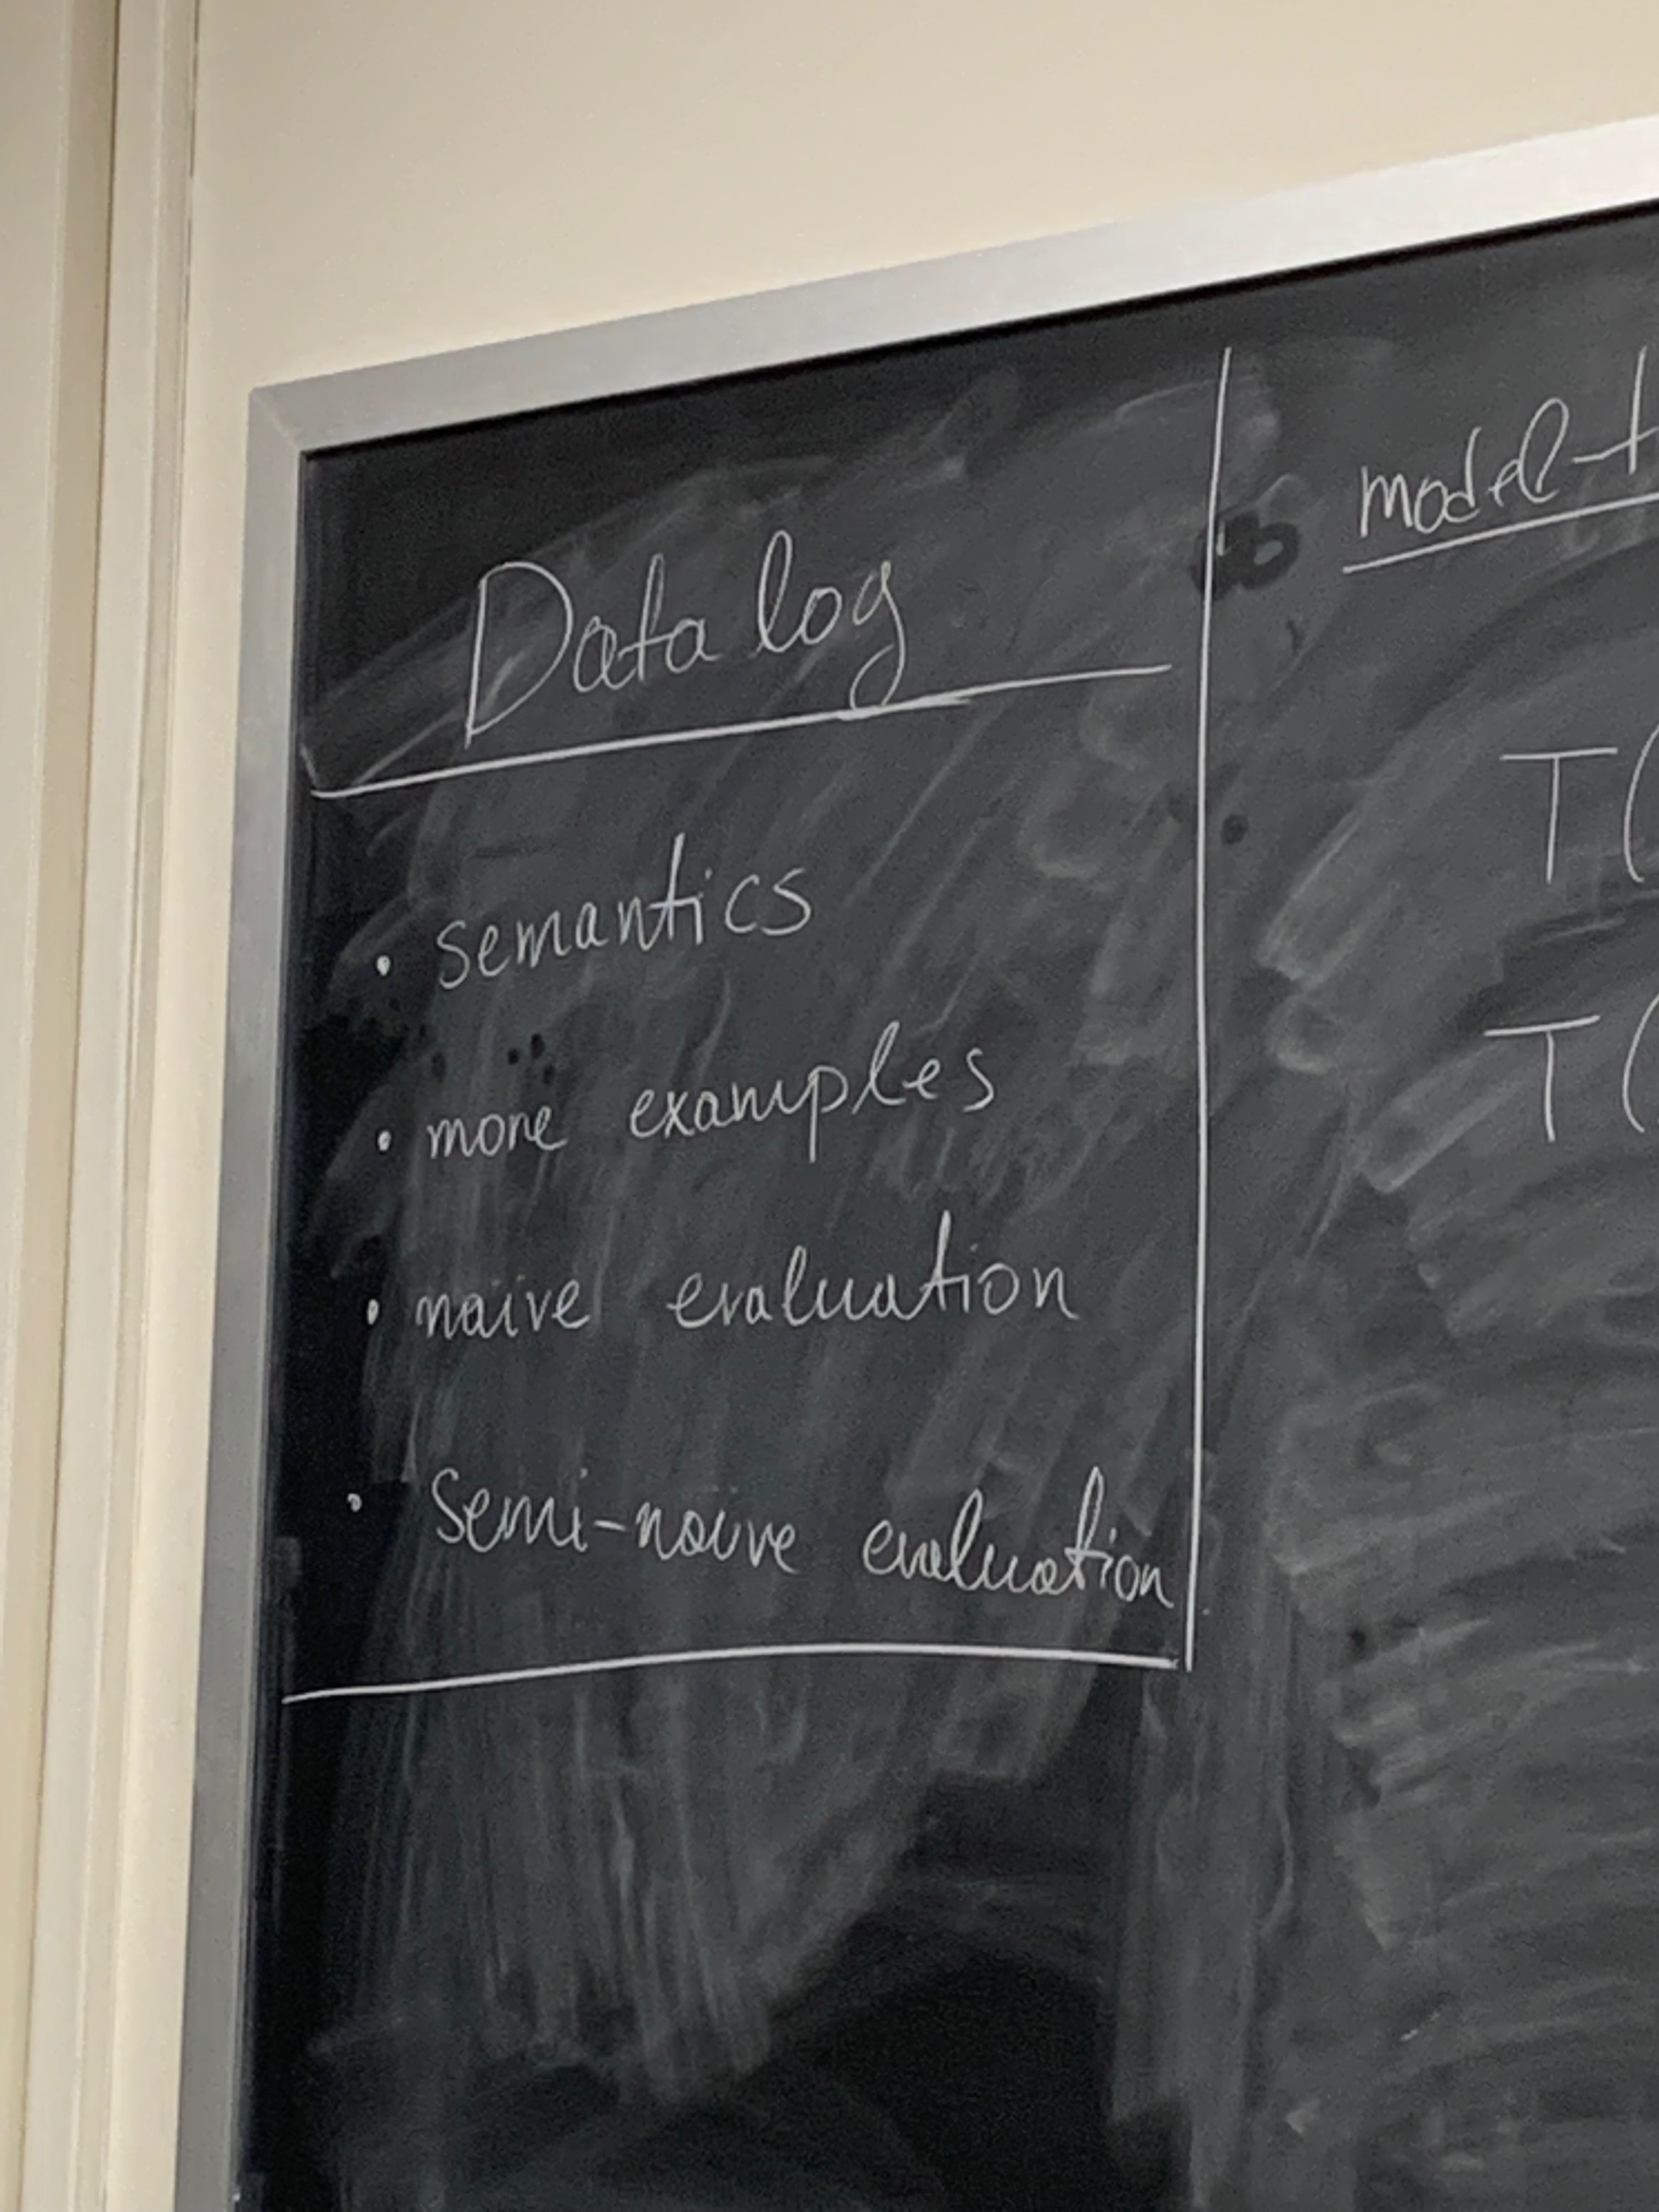 Datalog
• semantics
• more examples
• naive evaluation
• Semi-naive evaluation
model-t
T(
T(